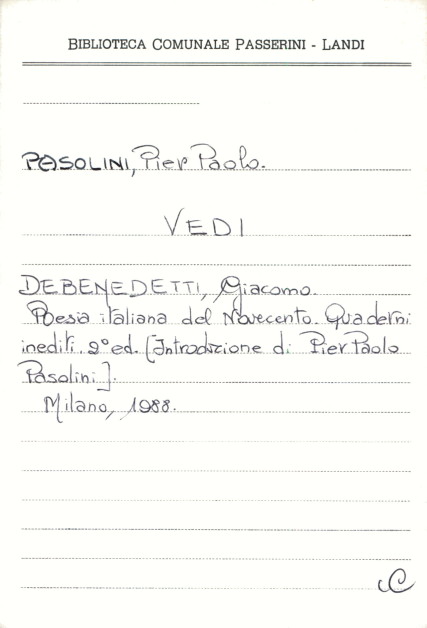 BIBLIOTECA COMUNALE PASSERINI - LANDI
PASOLINI, Pier Paolo.
VEDI
DEBENEDETTI, Giacomo.
Poesia italiana del Novecento. Quaderni
inediti. 2° ed. [Introduzione di Pier Paolo
Pasolini].
Milano, 1988.